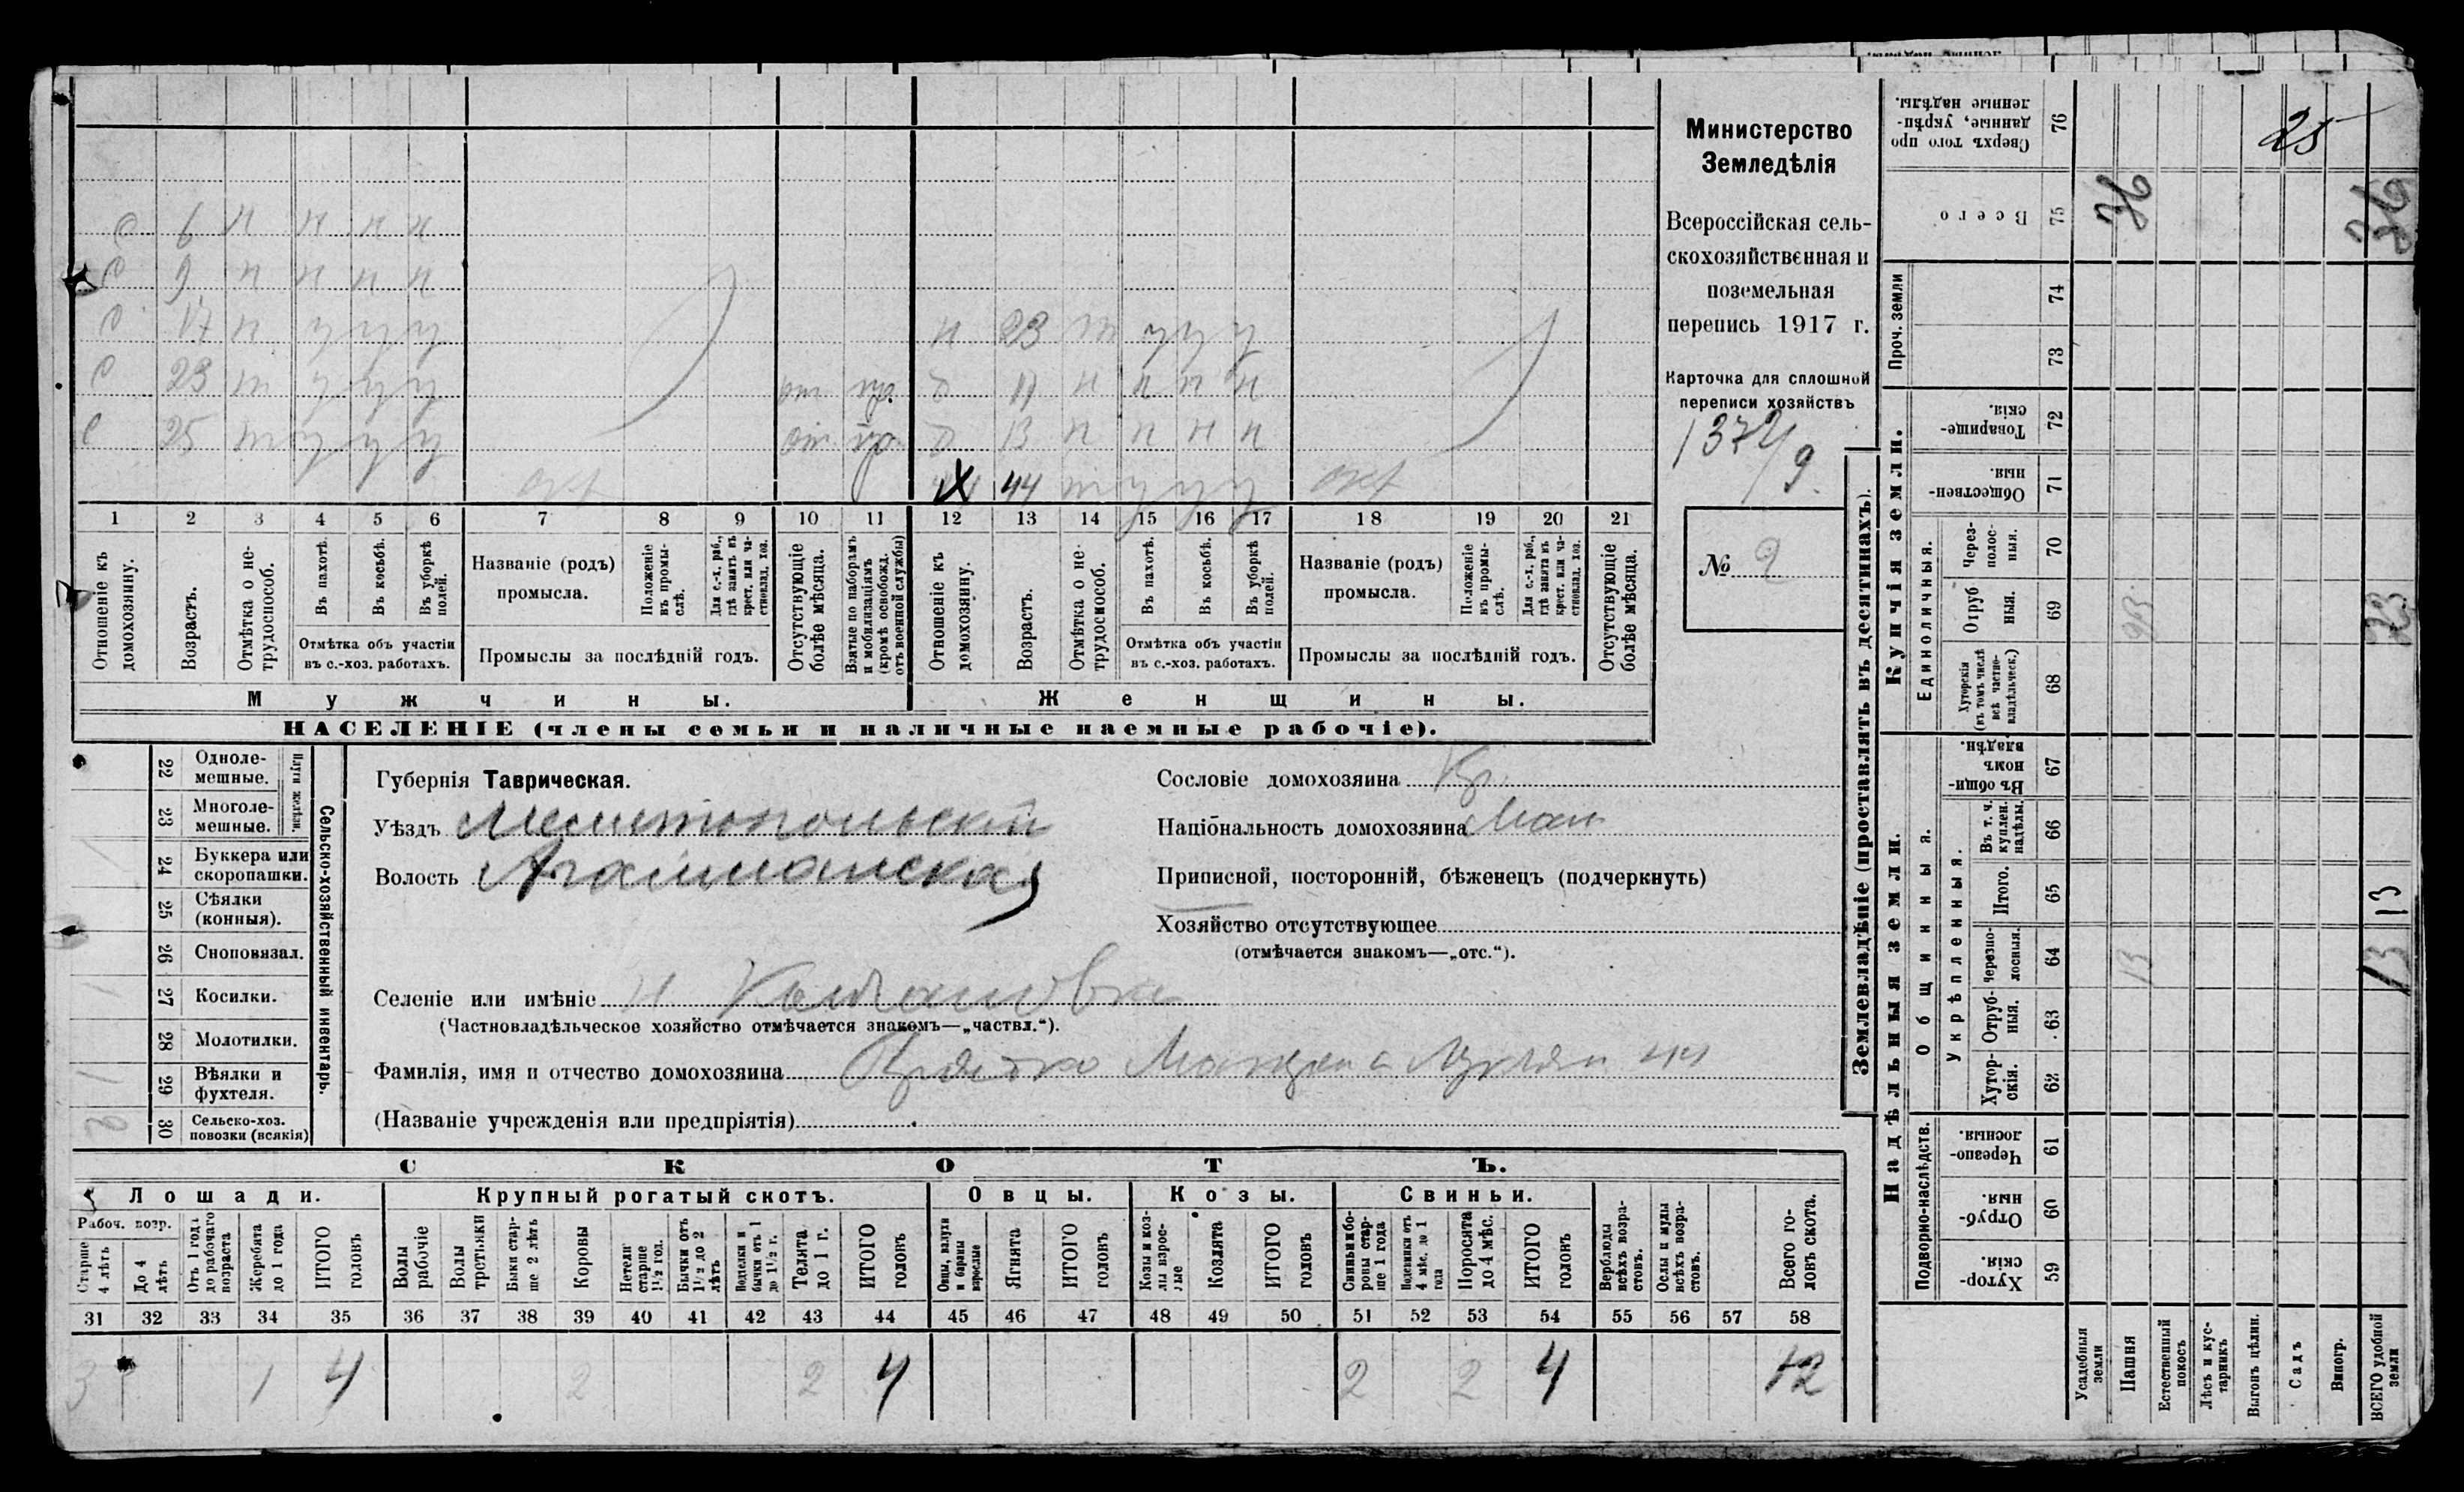 С 6 н н н н
С 9 н н н н
С 17 н у у у
н 23 т у у у
С 23 т у у у от пр.
д 11 н н н н
С 25 т у у у от пр.
д 13 н н н н
44 т у у у
1 2 3 4 5 6 7 8 9 10 11 12 13 14 15 16 17 18 19 20 21
Отношеніе къ домохозяину.
Возрастъ.
Отмѣтка о нетрудоспособ.
Въ пахотѣ.
Въ косьбѣ.
Въ уборкѣ полей.
Отмѣтка объ участіи въ с.-хоз. работахъ.
Названіе (родъ) промысла.
Положеніе въ промыслѣ.
Для с.-х. раб., гдѣ занятъ въ крест. или частновлад. хоз.
Промыслы за послѣдній годъ.
Отсутствующіе болѣе мѣсяца.
Взятые по наборамъ и мобилизаціямъ (кромѣ освобожд. отъ военной службы)
Отношеніе къ домохозяину.
Возрастъ.
Отмѣтка о нетрудоспособ.
Въ пахотѣ.
Въ косьбѣ.
Въ уборкѣ полей.
Отмѣтка объ участіи въ с.-хоз. работахъ.
Названіе (родъ) промысла.
Положеніе въ промыслѣ.
Для с.-х. раб., гдѣ занята въ крест. или частновлад. хоз.
Промыслы за послѣдній годъ.
Отсутствующіе болѣе мѣсяца.
Мужчины.
Женщины.
НАСЕЛЕНІЕ (члены семьи и наличные наемные рабочіе).
Министерство
Земледѣлія
Всероссійская сель-
скохозяйственная и
поземельная
перепись 1917 г.
Карточка для сплошной
переписи хозяйствъ
1372/9
№ 9
22 Одноле-
мешные.
23 Многоле-
мешные.
Плуги желѣзн.
24 Буккера или
скоропашки.
25 Сѣялки
(конныя).
26 Сноповязал.
27 Косилки.
28 Молотилки.
29 Вѣялки и
фухтеля.
30 Сельско-хоз.
повозки (всякія)
Сельско-хозяйственный инвентарь.
Губернія Таврическая.
Уѣздъ Мелитопольскій
Волость Агайманская
Селеніе или имѣніе
(Частновладѣльческое хозяйство отмѣчается знакомъ—„частвл.“).
Фамилія, имя и отчество домохозяина
(Названіе учрежденія или предпріятія)
Сословіе домохозяина Кр.
Національность домохозяина Мал
Приписной, посторонній, бѣженецъ (подчеркнуть)
Хозяйство отсутствующее
(отмѣчается знакомъ—„отс.“).
СКОТЪ.
Лошади. Крупный рогатый скотъ. Овцы. Козы. Свиньи.
Рабоч. возр.
Старше 4 лѣтъ
До 4 лѣтъ
Отъ 1 года до рабочаго возраста
Жеребята до 1 года
ИТОГО головъ
Волы рабочіе
Волы третьяки
Быки старше 2 лѣтъ
Коровы
Нетели старше 1½ год.
Бычки отъ 1½ до 2 лѣтъ
Подтелки и бычки отъ 1 до 1½ г.
Телята до 1 г.
ИТОГО головъ
Овцы, валухи и бараны взрослые
Ягнята
ИТОГО головъ
Козы и козлы взрослые
Козлята
ИТОГО головъ
Свиньи и боровы старше 1 года
Подсвинки отъ 4 мѣс. до 1 года
Поросята до 4 мѣс.
ИТОГО головъ
Верблюды всѣхъ возрастовъ.
Ослы и мулы всѣхъ возрастовъ.
Всего головъ скота.
31 32 33 34 35 36 37 38 39 40 41 42 43 44 45 46 47 48 49 50 51 52 53 54 55 56 57 58
3 1 4 2 2 4 2 2 4 12
Землевладѣніе (проставлять въ десятинахъ).
Надѣльныя земли.
Купчія земли.
Сверхъ того проданные, укрѣпленные надѣлы. 76 25
Всего 75 36 36
Проч. земли
74
73
Товарищескія. 72
Общественныя. 71
Единоличныя.
Черезполосныя. 70
Отрубныя. 69 23 23
Хуторскія (въ томъ числѣ всѣ частновладѣльческ.) 68
Общинныя.
Въ общинномъ владѣн. 67
Укрѣпленныя.
Въ т. ч. куплен. надѣлы. 66
Итого. 65 13
Черезполосныя. 64 13 13
Отрубныя. 63
Хуторскія. 62
Подворно-наслѣдств.
Черезполосныя. 61
Отрубныя. 60
Хуторскія. 59
Усадебныя земли
Пашня
Естественный покосъ
Лѣсъ и кустарникъ
Выгонъ цѣлин.
Садъ
Виногр.
ВСЕГО удобной земли